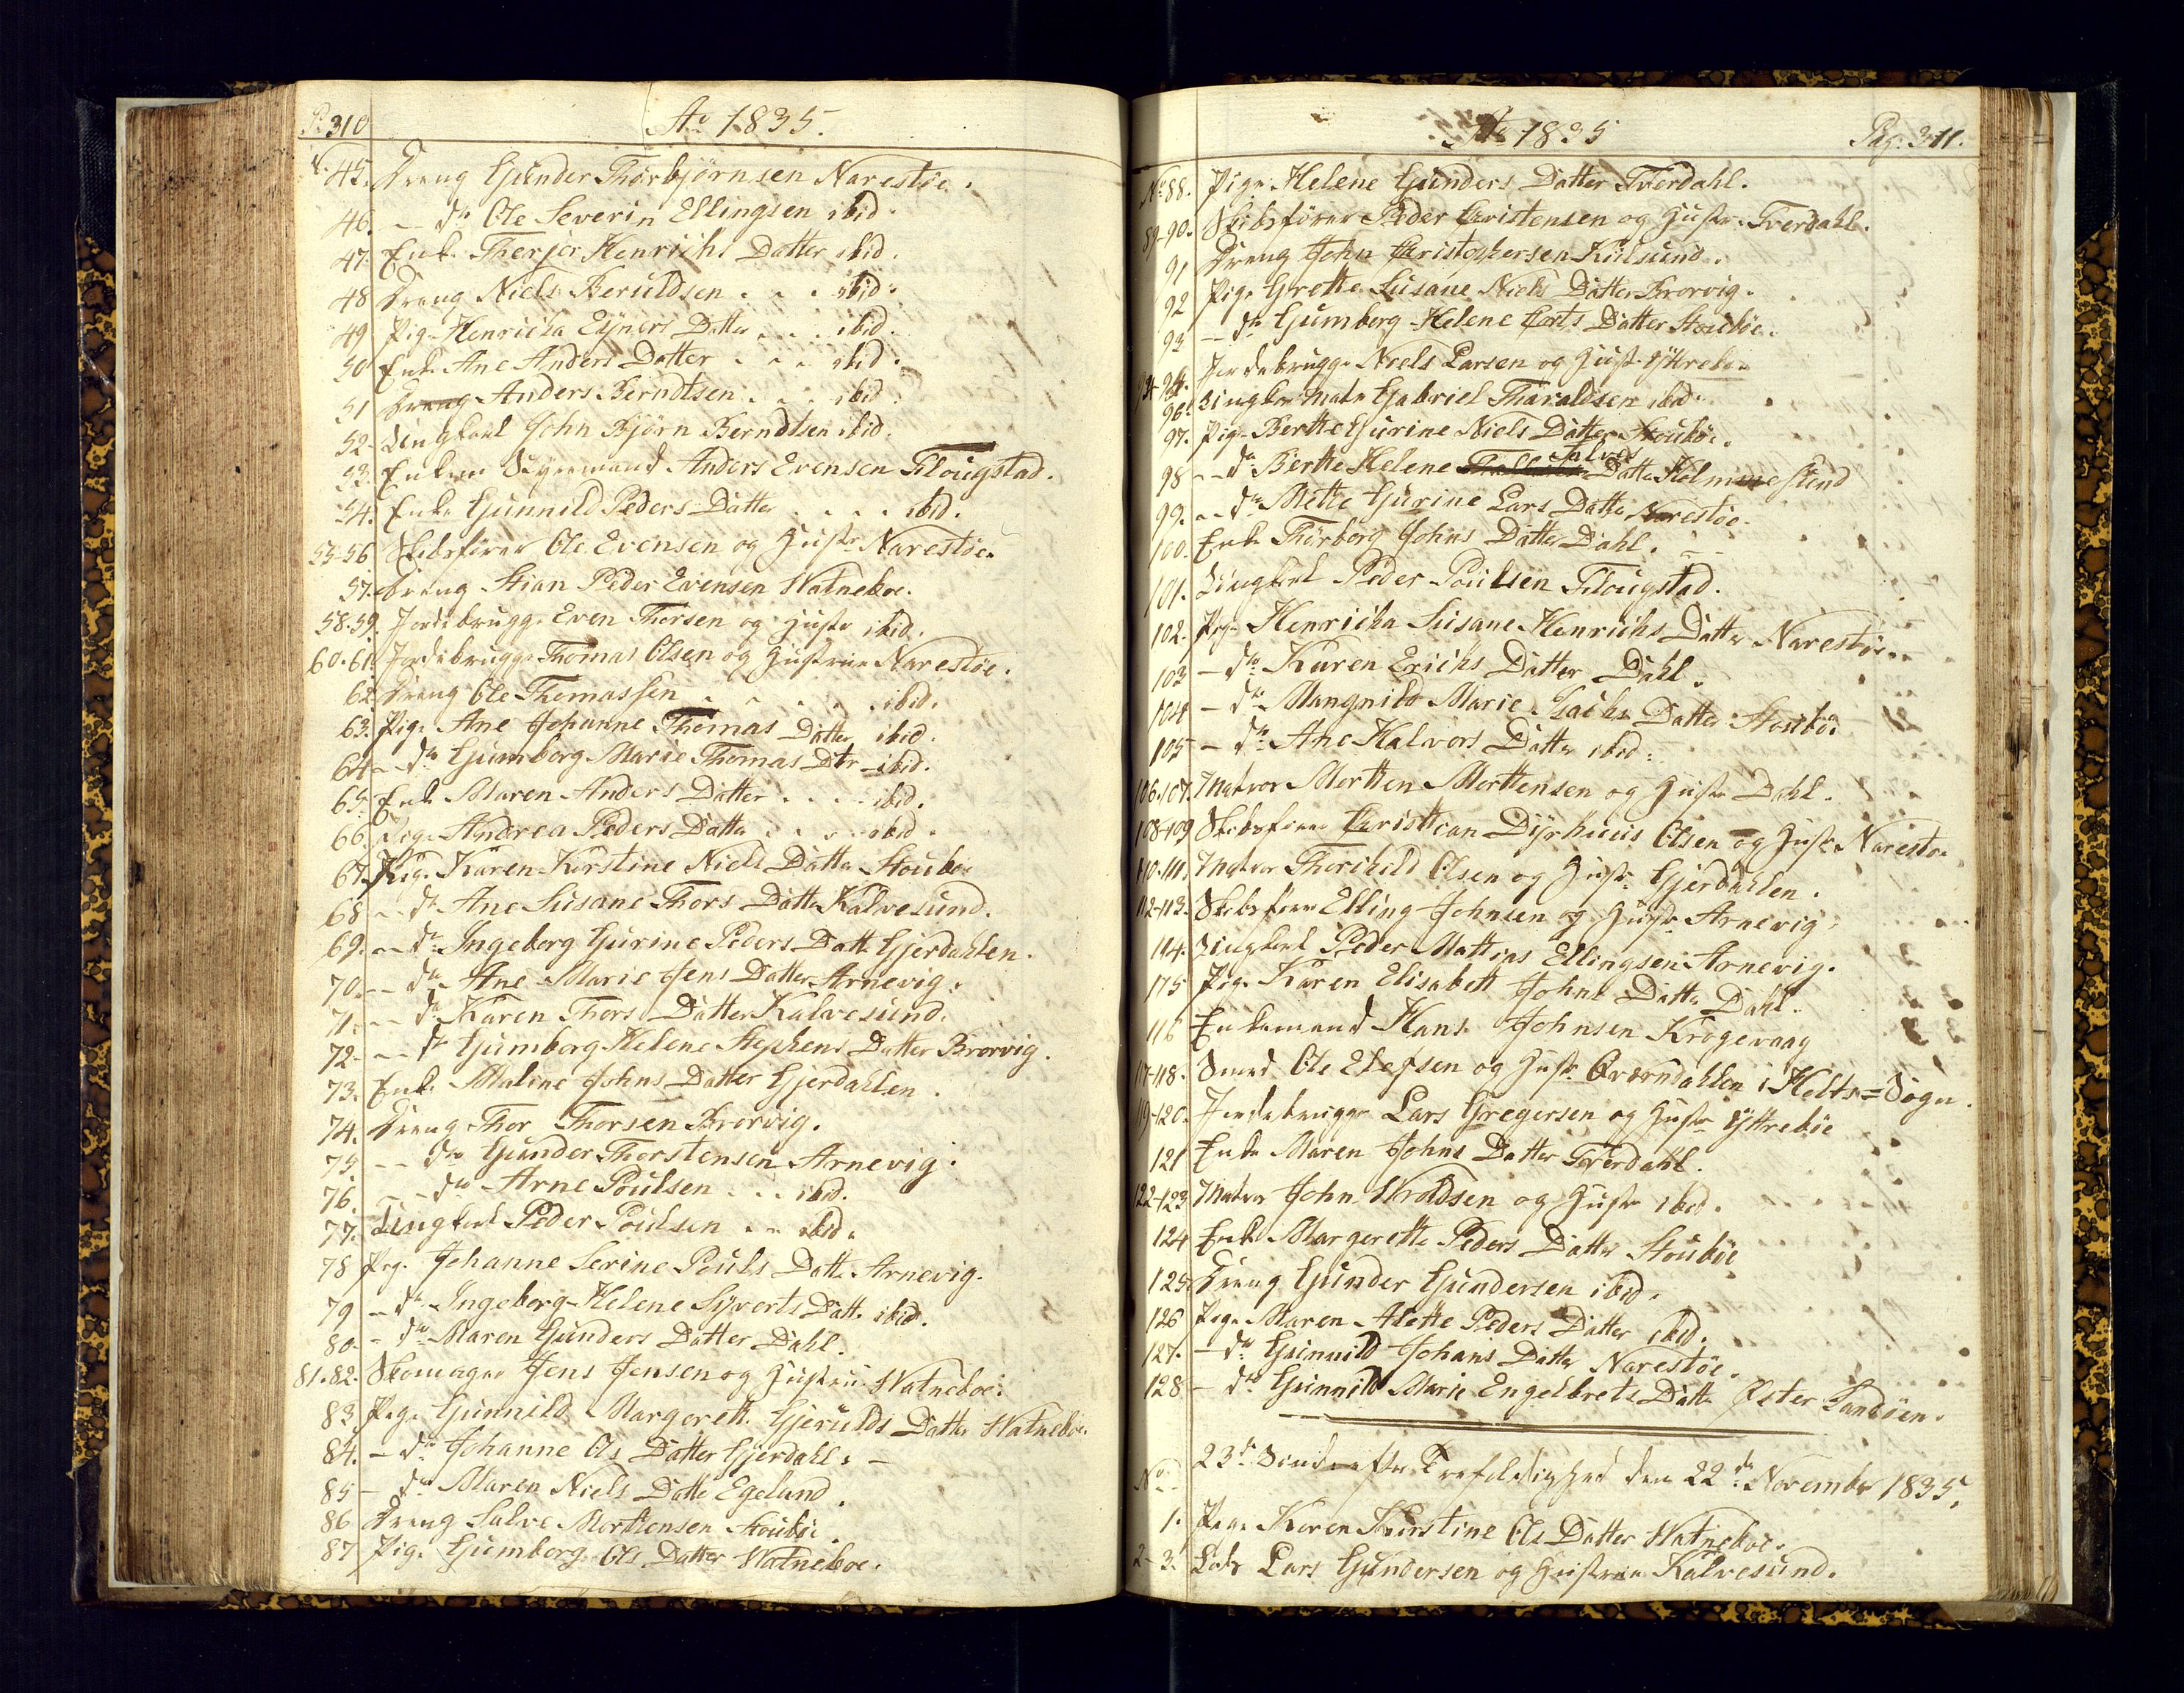 P. 310
Ao 1835.
N. 45. Dreng Gunder Thorbjørnsen Narestøe.
46. -- do Ole Severin Ellingsen ibid.
47. Enke Therjer Henrichs Datter ibid.
48 Dreng Niels Beruldsen . . . ibid.
49 Pige Henricha Ejners Datter . . . ibid.
50 Enke Ane Anders Datter . . . ibid.
51 Dreng Anders Berndtsen . . . ibid.
52. Ungkarl John Bjørn Berndtsen ibid.
53. Enkem Styrmand Anders Evensen Flougstad.
54. Enke Gunnild Peders Datter . . . . ibid.
55-56 Skibsfører Ole Evensen og Hustr Narestøe.
57. Dreng Stian Peder Evensen Watneboe.
58.59. Jordbrugge Even Thorsen og Hustr ibid.
60.61. Jordbrugge Thomas Olsen og Hustrue Narestøe.
62 Dreng Ole Thomassen . . . . . ibid.
63. Pige Ane Johanne Thomas Datter ibid.
64 -- do Gumborg Marie Thomas Dtr ibid.
65. Enke Maren Anders Datter . . . . ibid.
66. Pige Andrea Peders Datter . . . . ibid.
67. Pige Karen Kirstine Niels Datter Stouboe
68 -- do Ane Susane Thors Datter Kalvesund.
69. -- do Ingeborg Gurine Peders Datt. Gjerdahlen.
70. -- do Ane Marie Jens Datter Arnevig.
71. -- do Karen Thors Datter Kalvesund.
72 -- do Gumborg Helene Stephens Datter Brorvig.
73. Enke Maline Johns Datter Gjerdahlen.
74. Dreng Thor Thorsen Brorvig.
75 -- do Gunder Thorstensen Arnevig.
76. -- do Arne Poulsen . . . ibid.
77. Ungkarl Peder Poulsen . . ibid.
78 Pig. Johanne Serine Pouls Datt. Arnevig.
79 - do Ingeborg Helene Syverts Datt. ibid.
80 - do Maren Gunders Datter Dahl.
81.82. Skomager Jens Jensen og Hustrue Watneboe.
83 Pige Gunnild Margreth. Gjerulds Datter Watneboe.
84. - do Johanne Ols Datter Gjerdahl. -
85 - do Maren Niels Datte Egelund.
86 Dreng Salve Morthensen Stouboe
87 Pige Gumborg Ols Datter Watneboe.
Ao 1835
Pag. 311.
No 88. Pige Helene Gunders Datter Tverdahl.
89-90. Skibsfører Peder Christensen og Hustr. Tverdahl.
91 Dreng John Christophersen Kulsund.
92 Pige Grethe Susane Niels Datter Brorvig.
93 -- do Gumborg Helene Datter Stouboe.
94 Jordebrugge Niels Larsen og Hustr
96. Gabriel Tharaldsen ibid.
97. Pige Berthe Gurine Niels Datter Stouboe.
98 -- do Berthe Helene Salves Datter
99. -- do Mette Gurine Lars Datter Narestøe.
100. Enke Thorborg Johns Datter Dahl.
101. Ungkarl Peder Poulsen Flougstad.
102. Pige Henricha Susane Henrichs Datter Narestøe.
103 - do Karen Erichs Datter Dahl.
104 - do Mangnild Marie Datter Stouboe
105 - do Ane Halvors Datter ibid.
106.107. Matros Morthen Morthensen og Hustr Dahl.
108-109 Skibsfører Christian Dyrhuus Olsen og Hustr. Narestøe
110.111. Matros Thorchild Olsen og Hustr. Gjerdahlen.
112-113. Skibsfører Elling Johnsen og Hustr. Arnevig.
114. Ungkarl Peder Mathias Ellingsen Arnevig.
115 Pige Karen Elisabeth Johns Datter Dahl.
116 Enkemand Hans Johnsen Krogevaag
117-118. Smed Ole Elefsen og Hustr. Qværndahlen i Holts=Sogn.
119-120. Jordebrugge Lars Gregersen og Hustr Yttreboe
121 Enke Maren Johns Datter Tverdahl.
122-123 Matros John Wroldsen og Hustr ibid.
124 Enke Margrethe Peders Datter Stouboe
125. Dreng Gunder Gundersen ibid.
126 Pige Maren Alette Peders Datter ibid.
127. - do Gunnild Johans Datter Narestøe.
128 - do Gunnild Marie Engelbrets Datt. Øster Sandøen.
23de Sønd. efter Trefoldighed den 22de November 1835.
No
1. Pige Karen Kirstine Ols Datter Watneboe.
2-3. Lods Lars Gundersen og Hustrue Kalvesund.